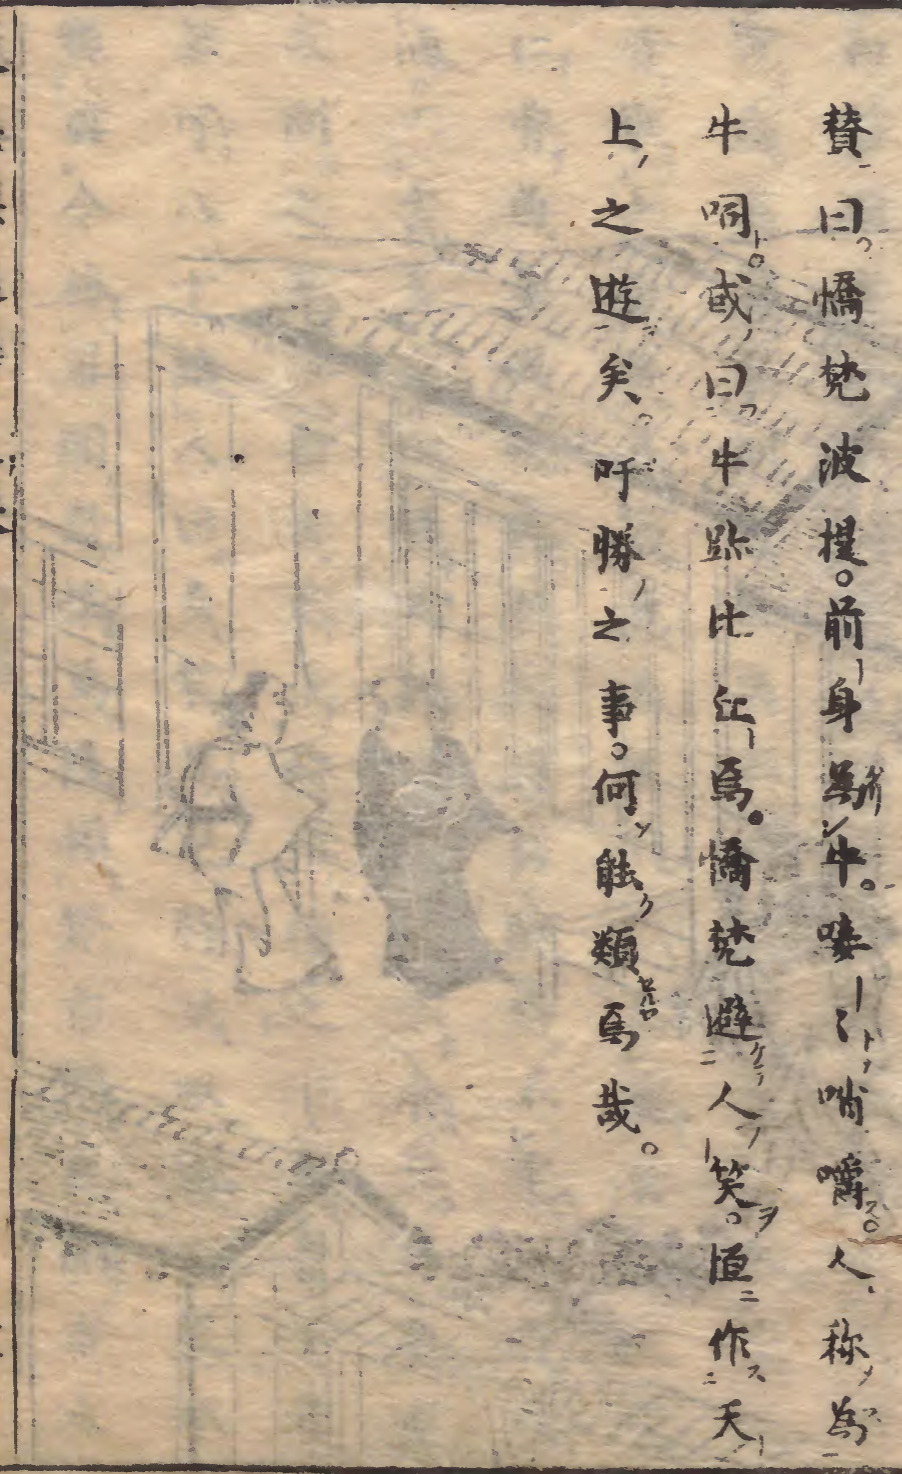 賛曰。憍梵波提。前身為牛。喽々哨嚼。人称為
牛呞。或曰。牛跡比丘焉。憍梵避人笑。恒作天
上之遊矣。吁勝之事。何能類焉哉。